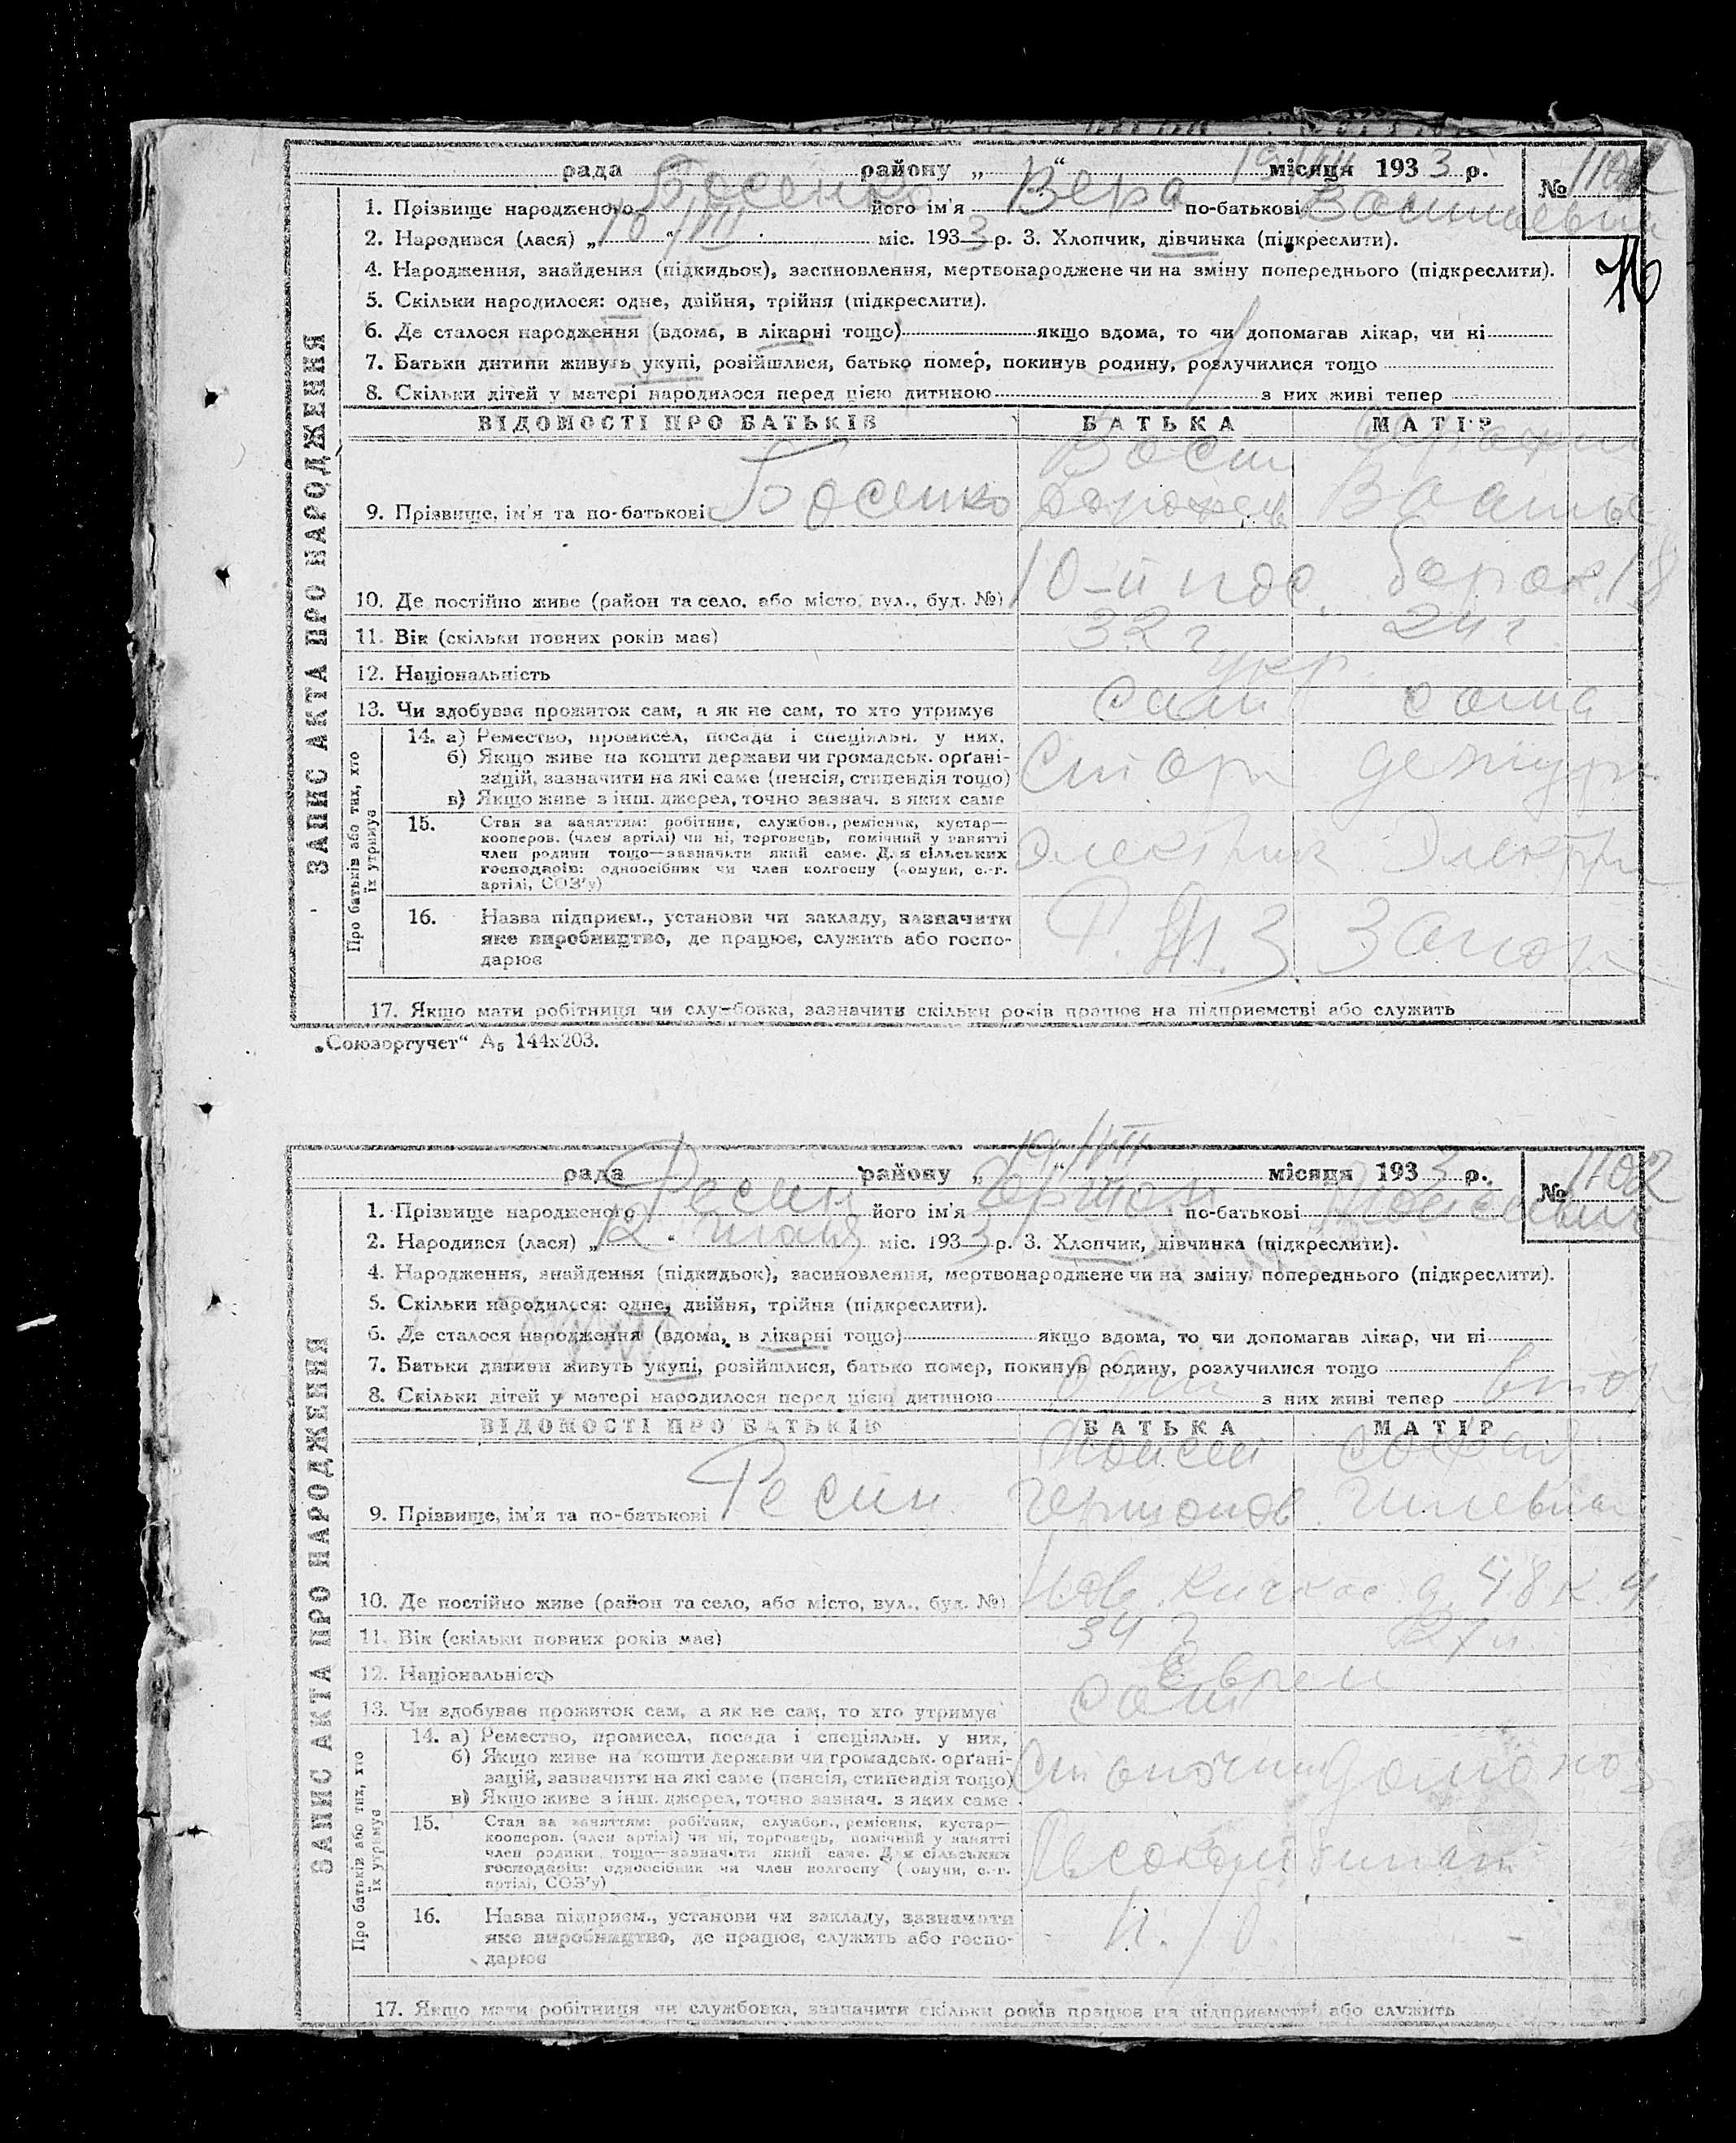 рада району „ “ 19/VIII місяця 1933 р.
№
1. Прізвище народженого Босенко його ім'я Вера по-батькові
2. Народився (лася) „ 10/VIII “ міс. 1933 р. 3. Хлопчик, дівчинка (підкреслити).
76
4. Народження, знайдення (підкидьок), засиновлення, мертвонароджене чи на зміну попереднього (підкреслити).
5. Скільки народилося: одне, двійня, трійня (підкреслити).
6. Де сталося народження (вдома, в лікарні тощо) якщо вдома, то чи допомагав лікар, чи ні
7. Батьки дитини живуть укупі, розійшлися, батько помер, покинув родину, розлучилися тощо
8. Скільки дітей у матері народилося перед цією дитиною з них живі тепер
ЗАПИС АКТА ПРО НАРОДЖЕННЯ
ВІДОМОСТІ ПРО БАТЬКІВ БАТЬКА МАТІР
9. Прізвище, ім'я та по-батькові Босенко
10. Де постійно живе (район та село, або місто, вул., буд. №) 10-й пос. барак 18
11. Вік (скільки повних років має) 32 г 24 г.
12. Національність укр
13. Чи здобуває прожиток сам, а як не сам, то хто утримує сам сама
Про батьків або тих, хто їх утримує
14. а) Ремество, промисел, посада і спеціяльн. у них.
б) Якщо живе на кошти держави чи громадськ. орґані-
зацій, зазначити на які саме (пенсія, стипендія тощо)
в) Якщо живе з інш. джерел, точно зазнач. з яких саме
15. Стан за заняттям: робітник, службов., ремісник, кустар—
кооперов. (член артілі) чи ні, торговець, помічний у занятті
член родини тощо—зазначити який саме. Для сільських
господарів: одноосібник чи член колгоспу (комуни, с.-г.
артілі, СОЗ'у)
16. Назва підприєм., установи чи закладу, зазначити
яке виробництво, де працює, служить або госпо-
дарює
17. Якщо мати робітниця чи службовка, зазначити скільки років працює на підприємстві або служить
„Союзоргучет“ А5 144х203.
рада району „ 19/VIII “ місяця 1933 р.
№ 1102
1. Прізвище народженого Ресин його ім'я Гершон по-батькові
2. Народився (лася) „ 2 “ июля міс. 1933 р. 3. Хлопчик, дівчинка (підкреслити).
4. Народження, знайдення (підкидьок), засиновлення, мертвонароджене чи на зміну попереднього (підкреслити).
5. Скільки народилося: одне, двійня, трійня (підкреслити).
6. Де сталося народження (вдома, в лікарні тощо) якщо вдома, то чи допомагав лікар, чи ні
7. Батьки дитини живуть укупі, розійшлися, батько помер, покинув родину, розлучилися тощо
8. Скільки дітей у матері народилося перед цією дитиною з них живі тепер
ЗАПИС АКТА ПРО НАРОДЖЕННЯ
ВІДОМОСТІ ПРО БАТЬКІВ БАТЬКА МАТІР
Моисей
9. Прізвище, ім'я та по-батькові Ресин Гершонов.
10. Де постійно живе (район та село, або місто, вул., буд. №) Нов. Кичкас д. 48 к. 4
11. Вік (скільки повних років має) 34 г 27 л.
12. Національність Евреи
13. Чи здобуває прожиток сам, а як не сам, то хто утримує сам
Про батьків або тих, хто їх утримує
14. а) Ремество, промисел, посада і спеціяльн. у них,
б) Якщо живе на кошти держави чи громадськ. орґані-
зацій, зазначити на які саме (пенсія, стипендія тощо)
в) Якщо живе з інш. джерел, точно зазнач. з яких саме
15. Стан за заняттям: робітник, службов., ремісник, кустар—
кооперов. (член артілі) чи ні, торговець, помічний у занятті
член родини тощо—зазначити який саме. Для сільських
господарів: одноосібник чи член колгоспу (комуни, с.-г.
артілі, СОЗ'у)
16. Назва підприєм., установи чи закладу, зазначити
яке виробництво, де працює, служить або госпо-
дарює
17. Якщо мати робітниця чи службовка, зазначити скільки років працює на підприємстві або служить